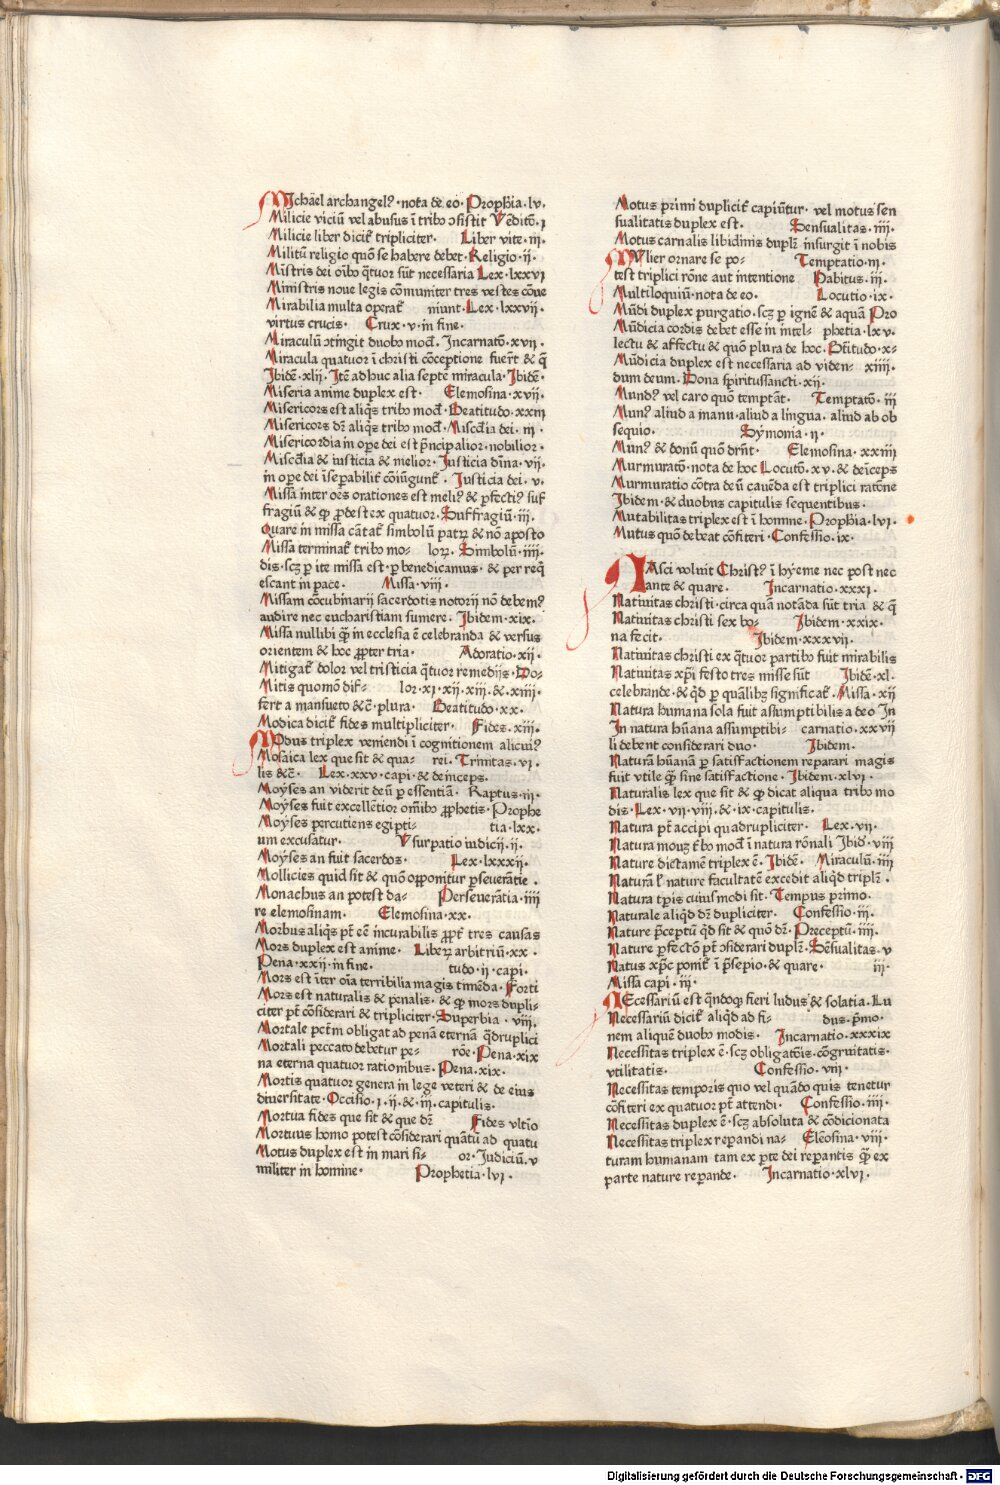 Michael archangelꝰ · nota de eo · Prophīa · lv ·
Milicie viciū vel abusus ī tribꝰ ↄsistit Vēditō · ı
Milicie liber dicit̄ tripliciter · Liber vite · ııı ·
Militū religio quō se habere debet · Religio · ıı ·
Mīstris dei oībꝰ q̄tuor sūt necessaria Lex · lxxvı
Ministris noue legis cōmuniter tres vestes cōue
Mirabilia multa operat̄ niunt · Lex · lxxvıı ·
virtus crucis · Crux · v · in fine ·
Miraculū ↄtingit duobꝰ mod̄ · Incarnatō · xvıı ·
Miracula quatuor ī christi cōceptione fuer̄t & q̄
Ibidē · xlıı · Itē adhuc alia septē miracula · Ibidē ·
Miseria anime duplex est · Elemosina · xvıı ·
Misericors est aliq̄s tribꝰ mod̄ · Beatitudo · xxııı
Misericors dr̄ aliq̄s tribꝰ mod̄ · Miscd̄ia dei · ııı ·
Misericordia in oꝑe dei est p̄ncipalior · nobilior ·
Miscd̄ia & iusticia & melior · Iusticia dīna · vıı ·
in oꝑe dei īseꝑabilit̄ cōiūgunt̄ · Iusticia dei · v ·
Missa inter oēs orationes est meliꝰ & ꝑfectiꝰ suf
fragiū & ꝙ ꝓdest ex quatuor · Suffragiū · ııı ·
Quare in missa cātat̄ simbolū patꝝ & nō aposto
Missa terminat̄ tribꝰ mo- loꝝ · Simbolū · ıııı ·
dis · scꝫ ꝑ ite missa est · ꝑ benedicamus · & per req̄
escant in pace · Missa · vııı ·
Missam cōcubinarij sacerdotis notorij nō debemꝰ
audire nec eucharistiam sumere · Ibidem · xıx ·
Missa nullibi q̄ꝫ in ecclesia ē celebranda & versus
orientem & hoc ꝓpter tria · Adoratio · xıı ·
Mitigat̄ dolor vel tristicia q̄tuor remedijs · Do-
Mitis quomō dif- lor · xı · xıı · xııı · & · xıııı ·
fert a mansueto & c̄ · plura · Beatitudo · xx ·
Modica dicit̄ fides multipliciter · Fides · xııı ·
Modus triplex veniendi ī cognitionem alicuiꝰ
Mosaica lex que sit & qua- rei · Trinitas · vı ·
lis &c̄ · Lex · xxv · capi · & deinceps ·
Moyses an viderit deū ꝑ essentiā · Raptus · ııı ·
Moyses fuit excellētior om̄ibꝰ ꝓphetis · Prophe
Moyses percutiens egipti- tia · lxx ·
um excusatur · Vsurpatio iudicij · ıı ·
Moyses an fuit sacerdos · Lex · lxxxıı ·
Mollicies quid sit & quō opponitur ꝑseuerātie ·
Monachus an potest da- Perseuerātia · ıııı
re elemosinam · Elemosina · xx ·
Morbus aliq̄s pt̄ eē incurabilis ꝓpt̄ tres causas
Mors duplex est anime · Liberꝝ arbitriū · xx ·
Pena · xxıı · in fine · tudo · ıı · capi ·
Mors est īter oīa terribilia magis timēda · Forti
Mors est naturalis & penalis · & ꝙ mors dupli-
citer pt̄ cōsiderari & tripliciter · Superbia · vııı ·
Mortale pctm̄ obligat ad penā eternā q̄druplici
Mortali peccato debetur pe- rōe · Pena · xıx
na eterna quatuor rationibus · Pena · xıx ·
Mortis quatuor genera in lege veteri & de eius
diuersitate · Occisio · ı · ıı · & · ııı · capitulis ·
Mortua fides que sit & que dr̄ Fides vltīo
Mortuus homo potest cōsiderari quātū ad quatu
Motus duplex est in mari si- or · Iudiciū · v
militer in homine · Prophetia · lvı ·
Motus primi duplicit̄ capiūtur · vel motus sen
sualitatis duplex est · Sensualitas · ıııı ·
Motus carnalis libidinis duplr̄ insurgit ī nobis
Mulier ornare se po- Temptatio · ııı ·
test triplici rōne aut intentione Habitus · ııı ·
Multiloquiū · nota de eo · Locutio · ıx ·
Mūdi duplex purgatio · scꝫ ꝑ ignē & aquā Pro
Mūdicia cordis debet esse in intel- phetia · lxv ·
lectu & affectu & quō plura de hoc · Bt̄itudo · x ·
Mūdicia duplex est necessaria ad viden- xıııı ·
dum deum · Dona spiritussancti · xıı ·
Mundꝰ vel caro quō temptāt · Temptatō · ııı
Munꝰ aliud a manu · aliud a lingua · aliud ab ob
sequio · Symonia · ıı ·
Munꝰ & donū quō drn̄t · Elemosina · xxıııı
Murmuratō · nota de hoc Locutō · xv · & deīceps
Murmuratio cōtra deū cauēda est triplici ratōne
Ibidem · & duobus capitulis sequentibus ·
Mutabilitas triplex est ī homine · Prophīa · lvı ·
Mutus quō debeat cōfiteri · Confessio · ıx ·
NAsci voluit Christꝰ ī hyeme nec post nec
ante & quare · Incarnatio · xxxı ·
Natiuitas christi · circa quā notāda sūt tria & q̄
Natiuitas christi sex bo- Ibidem · xxıx ·
na fecit · Ibidem · xxxvıı ·
Natiuitas christi ex q̄tuor partibꝰ fuit mirabilis
Natiuitas xp̄i festo tres misse sūt Ibidē · xl ·
celebrande · & q̄d ꝑ quālibꝫ significat̄ · Missa · xıı
Natura humana sola fuit assumptibilis a deo In
In natura hūana assumptibi- carnatio · xxvıı
li debent considerari duo · Ibidem ·
Naturā hūanā ꝑ satisfactionem reparari magis
fuit vtile q̄ꝫ sine satisfactione · Ibidem · xlvı ·
Naturalis lex que sit & ꝙ dicat aliqua tribꝰ mo
dis · Lex · vıı · vııı · & · ıx · capitulis ·
Natura pt̄ accipi quadrupliciter · Lex · vıı ·
Natura mouꝫ t̄bꝰ mod̄ ī natura rōnali Ibid̄ · vııı
Nature dictamē triplex ē · Ibidē · Miraculū · ıııı
Naturā ł nature facultatē excedit aliq̄d triplr̄ ·
Natura tꝑis cuiusmodi sit · Tempus primo ·
Naturale aliq̄d dr̄ dupliciter · Confessio · ııı ·
Nature p̄ceptū q̄d sit & quō dr̄ · Preceptū · ıııı ·
Nature ꝑfectō pt̄ ↄsiderari duplr̄ · Sēsualitas · v
Natus xp̄c ponit̄ ī p̄sepio · & quare · ııı ·
Missa capi · ııı ·
NEcessariū est q̄ndoqꝫ fieri ludus & solatia · Lu
Necessariū dicit̄ aliq̄d ad fi- dus · p̄mo ·
nem aliquē duobꝰ modis · Incarnatio · xxxıx
Necessitas triplex ē · scꝫ obligatōis · cōgruitatis ·
vtilitatis · Confessio · vıı ·
Necessitas temporis quo vel quādo quis tenetur
cōfiteri ex quatuor pt̄ attendi · Confessio · ıııı ·
Necessitas duplex ē · scꝫ absoluta & cōdicionata
Necessitas triplex reꝑandi na- Elēosina · vııı ·
turam humanam tam ex ꝑte dei reꝑantis q̄ꝫ ex
parte nature reꝑande · Incarnatio · xlvı ·
Digitalisierung gefördert durch die Deutsche Forschungsgemeinschaft - DFG